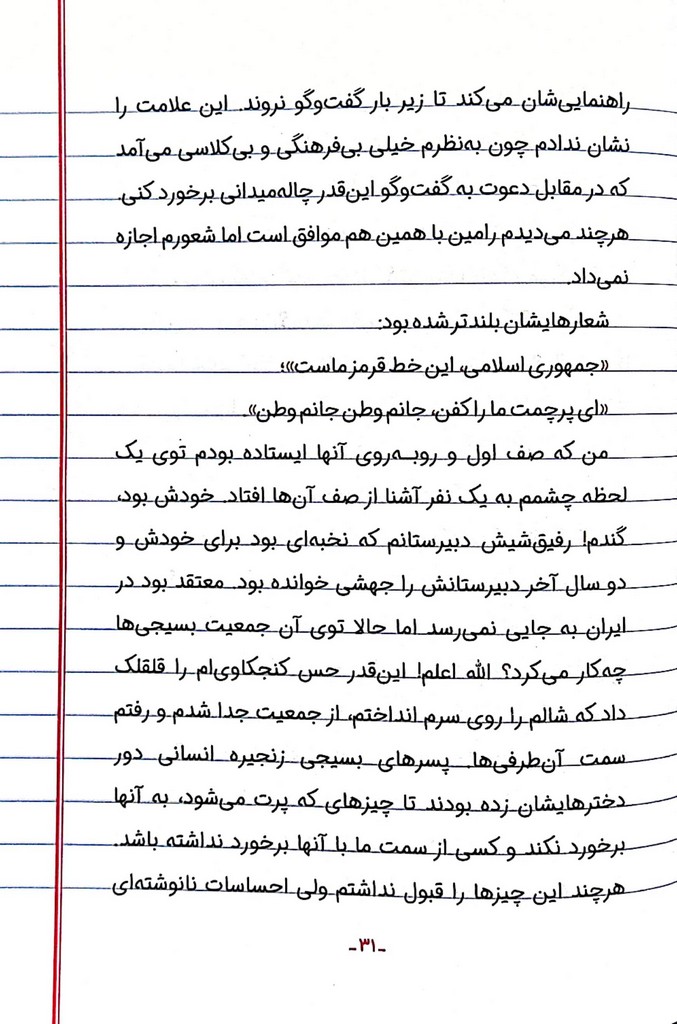 راهنمایی‌شان می‌کند تا زیر بار گفت‌وگو نروند. این علامت را
نشان ندادم چون به‌نظرم خیلی بی‌فرهنگی و بی‌کلاسی می‌آمد
که در مقابل دعوت به گفت‌وگو این‌قدر چاله‌میدانی برخورد کنی.
هرچند می‌دیدم رامین با همین هم موافق است اما شعورم اجازه
نمی‌داد.
شعارهایشان بلندتر شده بود:
«جمهوری اسلامی، این خط قرمز ماست»؛
«ای پرچمت ما را کفن، جانم وطن جانم وطن».
من که صف اول و روبه‌روی آنها ایستاده بودم توی یک
لحظه چشمم به یک نفر آشنا از صف آن‌ها افتاد. خودش بود،
گندم! رفیق‌شیش دبیرستانم که نخبه‌ای بود برای خودش و
دو سال آخر دبیرستانش را جهشی خوانده بود. معتقد بود در
ایران به جایی نمی‌رسد اما حالا توی آن جمعیت بسیجی‌ها
چه‌کار می‌کرد؟ الله اعلم! این‌قدر حس کنجکاوی‌ام را قلقلک
داد که شالم را روی سرم انداختم، از جمعیت جدا شدم و رفتم
سمت آن‌طرفی‌ها. پسرهای بسیجی زنجیره انسانی دور
دخترهایشان زده بودند تا چیزهای که پرت می‌شود، به آنها
برخورد نکند و کسی از سمت ما با آنها برخورد نداشته باشد.
هرچند این چیزها را قبول نداشتم ولی احساسات نانوشته‌ای
-۳۱-